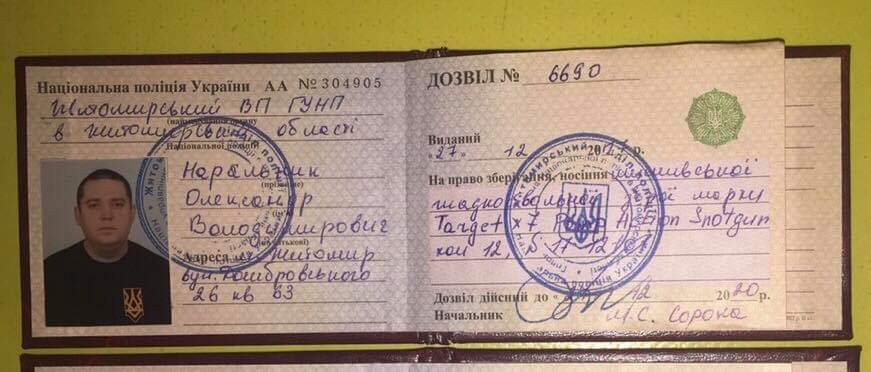 Національна поліція України АА № 304905
Житомирський ВП ГУНП
(найменування органу
в Житомирській області
Національної поліції)
Олександр
Володимирович
Адреса м. Житомир
вул.
26 кв 83
ДОЗВІЛ № 6690
Виданий
"27" 12 2017 р.
На право зберігання, носіння мисливської
гладкоствольної зброї марки
Target x7 Pump Action Shotgun
кал 12,
Дозвіл дійсний до 12 2020 р.
Начальник М.С. Сорока